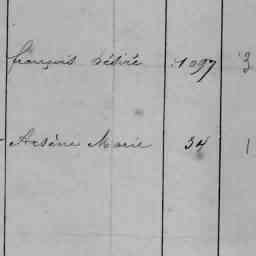 françois Désiré 1097 3
Arsène Marie 34 1